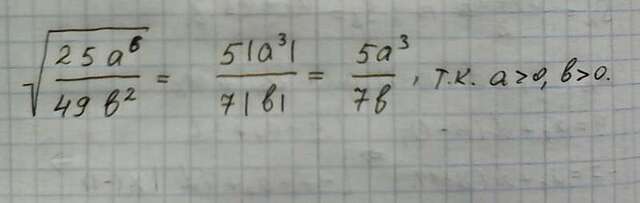 √(25a⁶/49в²) = 5|a³|/7|в| = 5a³/7в, т.к. a>0, в>0.